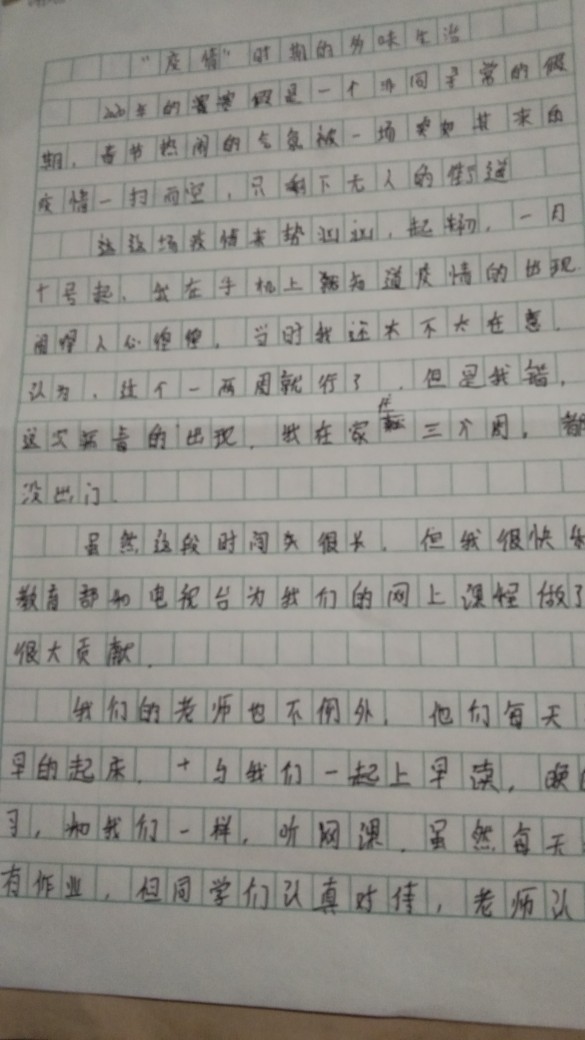 “疫情”时期的多味生活
2020年的寒假是一个不同寻常的假
期，春节热闹的气氛被一场突如其来的
疫情一扫而空，只剩下无人的街道
这场疫情来势汹汹，起初，一月
十号起，我在手机上知道疫情的出现
闹得人心惶惶，当时我还太不大在意，
认为，过个一两周就行了，但是我错，
这次病毒的出现，我在家待三个月，都
没出门。
虽然这段时间很长，但我很快
教育部和电视台为我们的网上课程做了
很大贡献。
我们的老师也不例外，他们每天
早的起床，与我们一起上早读，晚
习，和我们一样，听网课，虽然每天
有作业，但同学们认真对待，老师认